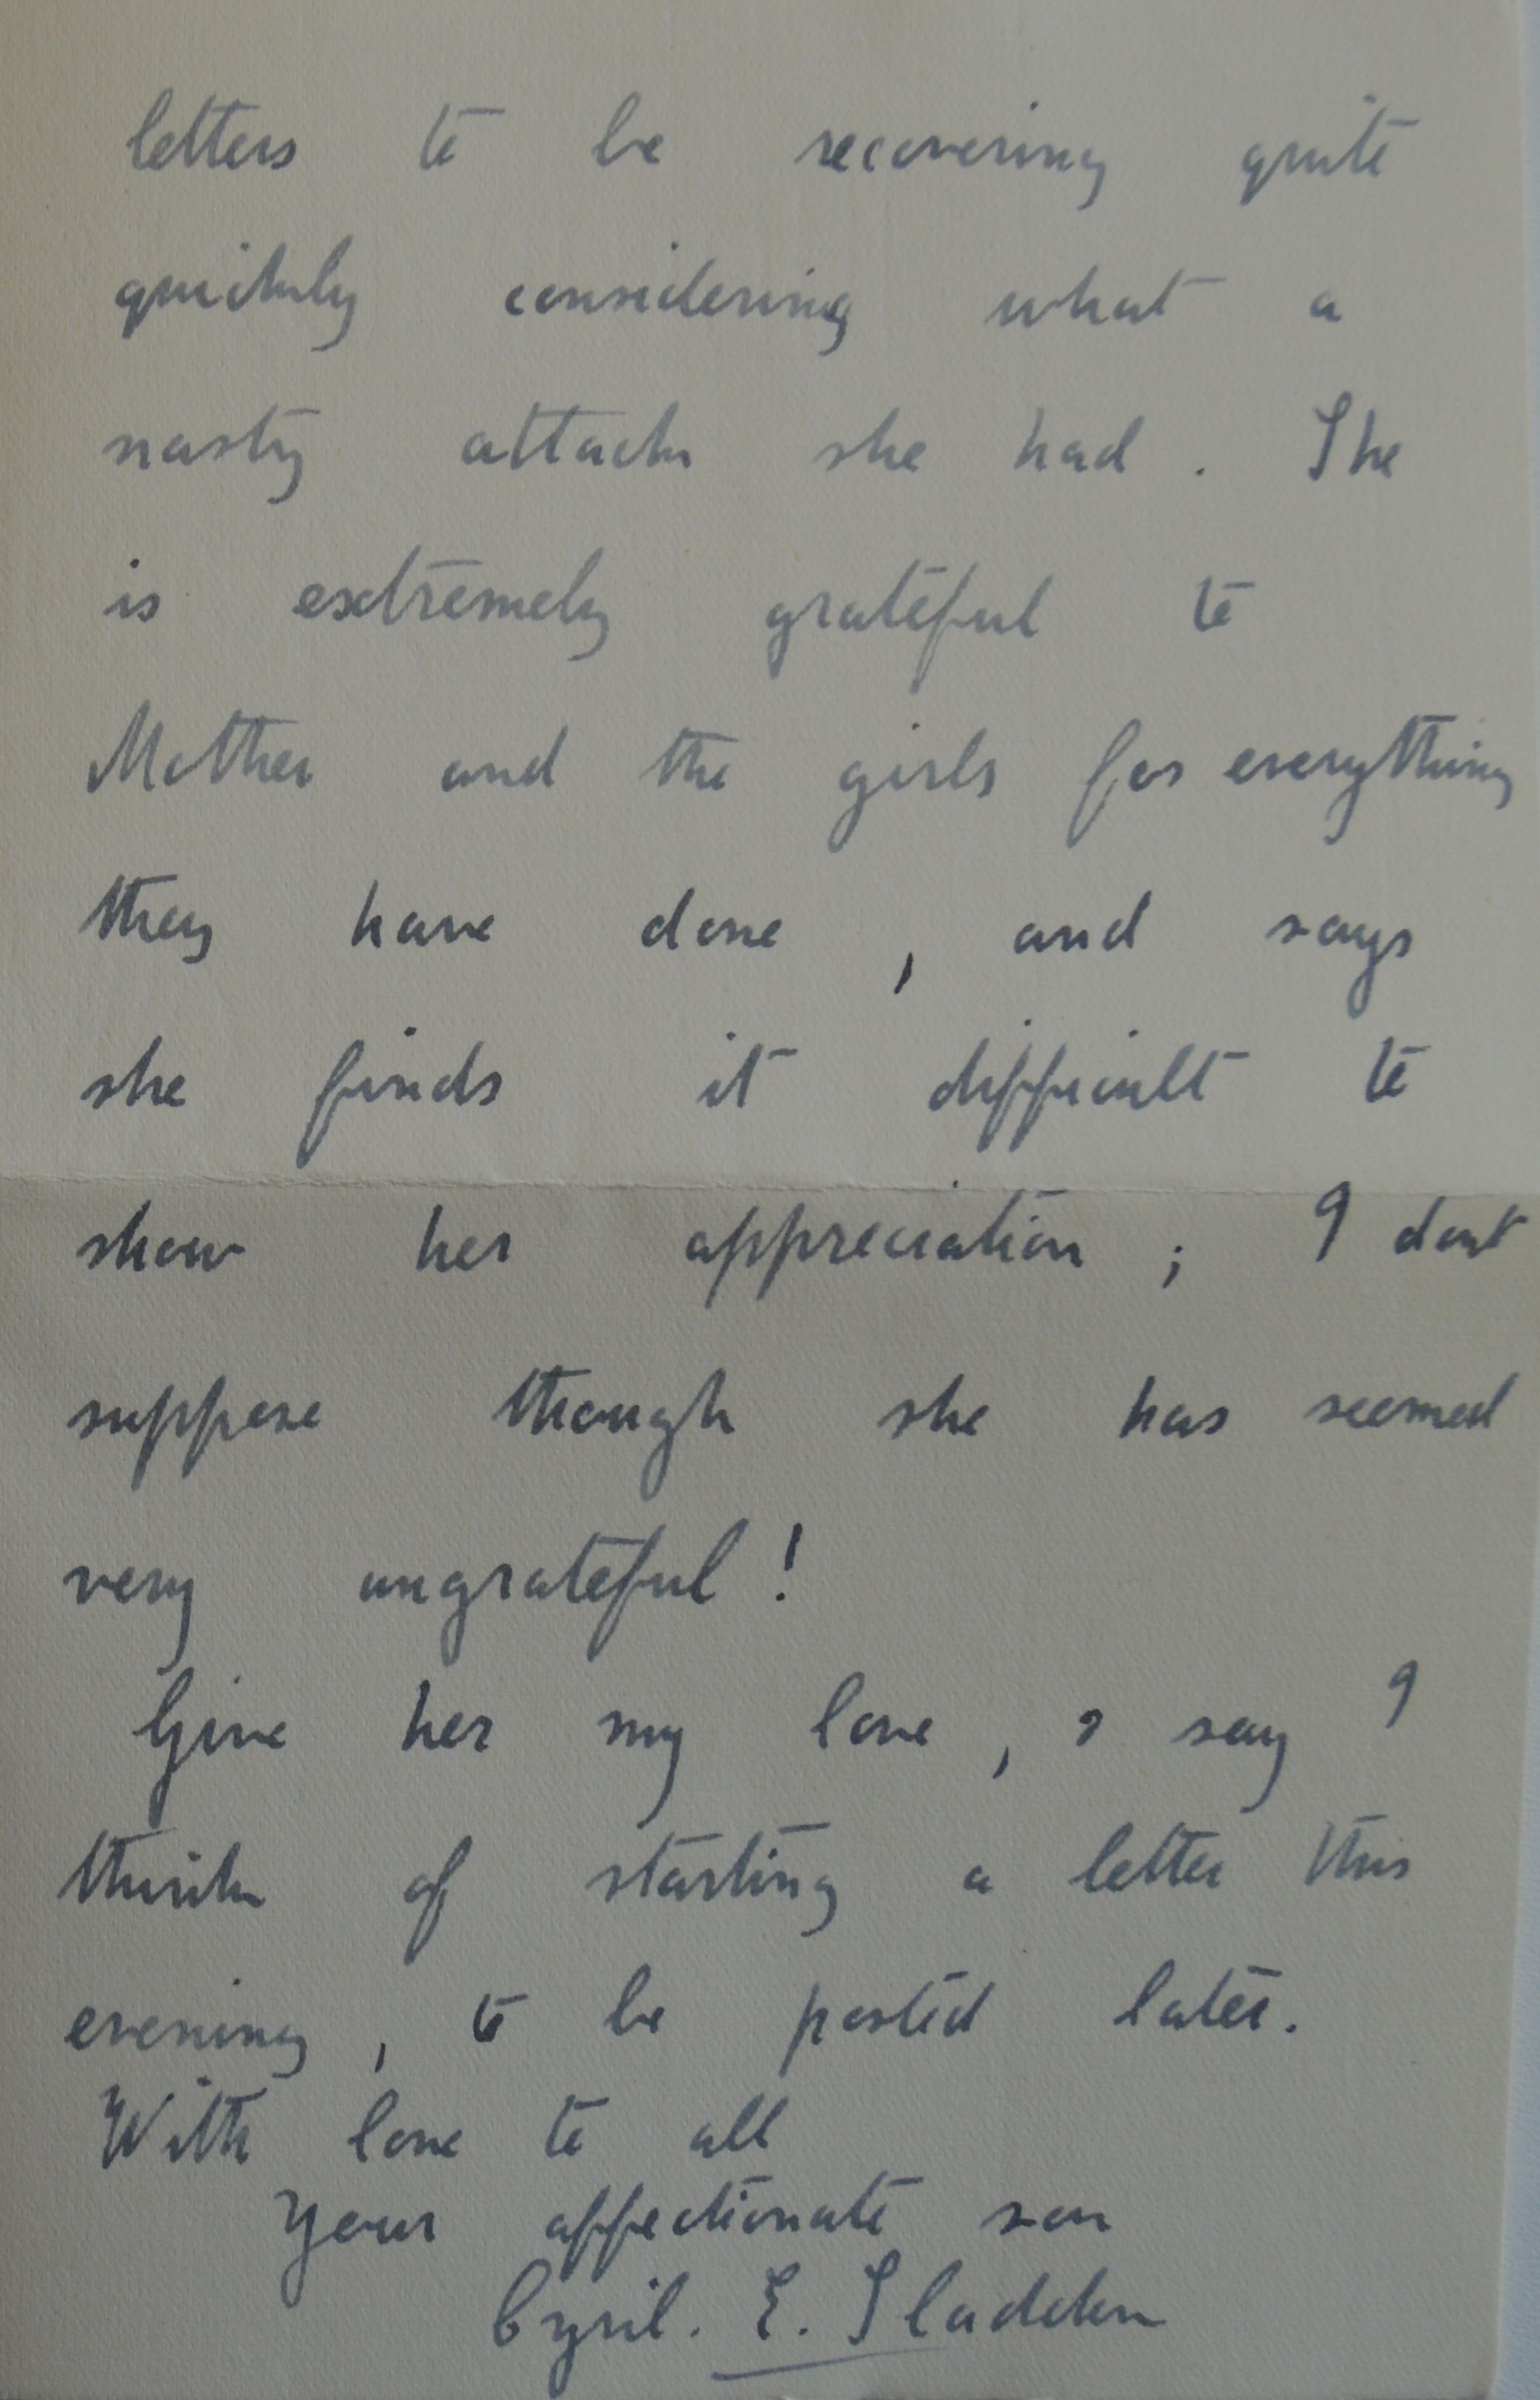 letters to be recovering quite
quickly considering what a
nasty attack she had. She
is extremely grateful to
Mother and the girls for everything
they have done, and says
she finds it difficult to
show her appreciation; I dont
suppose though she has seemed
very ungrateful!
Give her my love, & say I
think of starting a letter this
evening, to be posted later.
With love to all
Your affectionate son
Cyril. E. Sladden